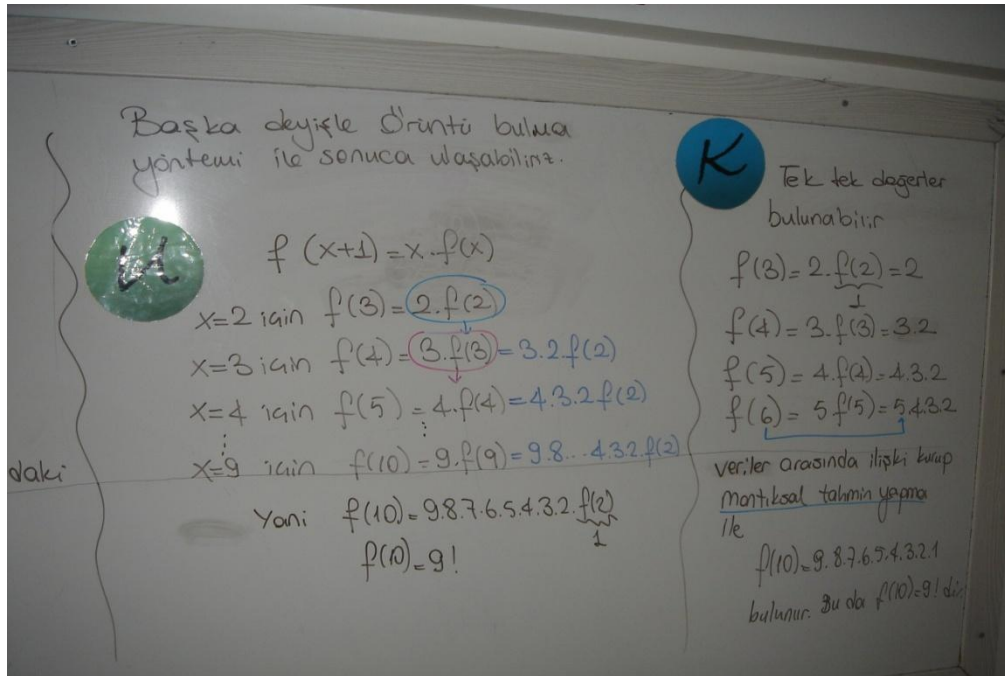 Başka deyişle Örüntü bulma
yöntemi ile sonuca ulaşabiliriz.
U
f (x+1)=x.f(x)
x=2 için f(3)=2.f(2)
x=3 için f(4)=3.f(3)=3.2f(2)
x=4 için f(5)=4.f(4)=4.3.2f(2)
⋮ ⋮
x=9 için f(10)=9.f(9)=9.8...4.3.2.f(2)
Yani f(10)=9.8.7.6.5.4.3.2.f(2)
1
f(10)=9!
daki
K
Tek tek değerler
bulunabilir
f(3)=2.f(2)=2
1
f(4)=3.f(3)=3.2
f(5)=4.f(4)=4.3.2
f(6)=5f(5)=5.4.3.2
veriler arasında ilişki kurup
mantıksal tahmin yapma
ile
f(10)=9.8.7.6.5.4.3.2.1
bulunur. Bu da f(10)=9! dir